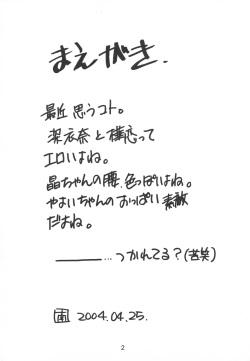 まえがき.
最近思うコト。
深衣奈と横恋って
エロいよね。
晶ちゃんの腰、色っぽいよね。
やよいちゃんのおっぱい素敵
だよね。
————…つかれてる？(苦笑)
2004.04.25.
2